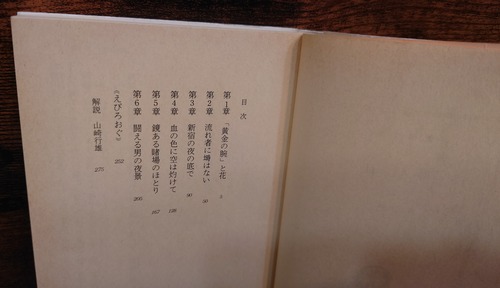 目次
第1章 「黄金の腕」と花 5
第2章 流れ者に塒はない
第3章 新宿の夜の底で
第4章 血の色に空は灼けて 128
第5章 鏡ある賭場のほとり 167
第6章 闘える男の夜景 205
《えぴろおぐ》 252
解説 山崎行雄 275